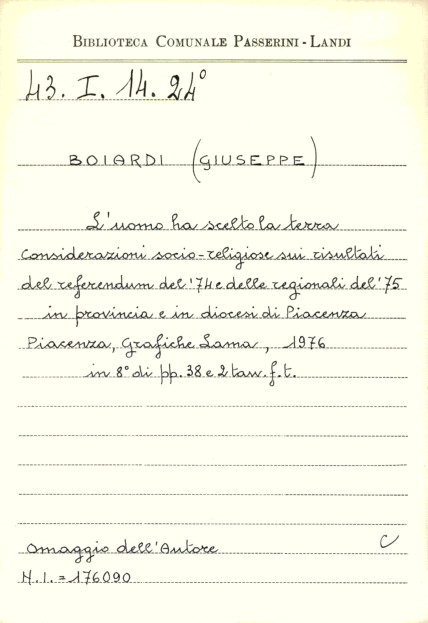 BIBLIOTECA COMUNALE PASSERINI - LANDI
43. I. 14. 24°
BOIARDI (GIUSEPPE)
L'uomo ha scelto la terra
Considerazioni socio-religiose sui risultati
del referendum del '74 e delle regionali del '75
in provincia e in diocesi di Piacenza
Piacenza, Grafiche Lama, 1976
in 8° di pp. 38 e 2 tav. f. t.
Omaggio dell'Autore C
N.I. = 176090